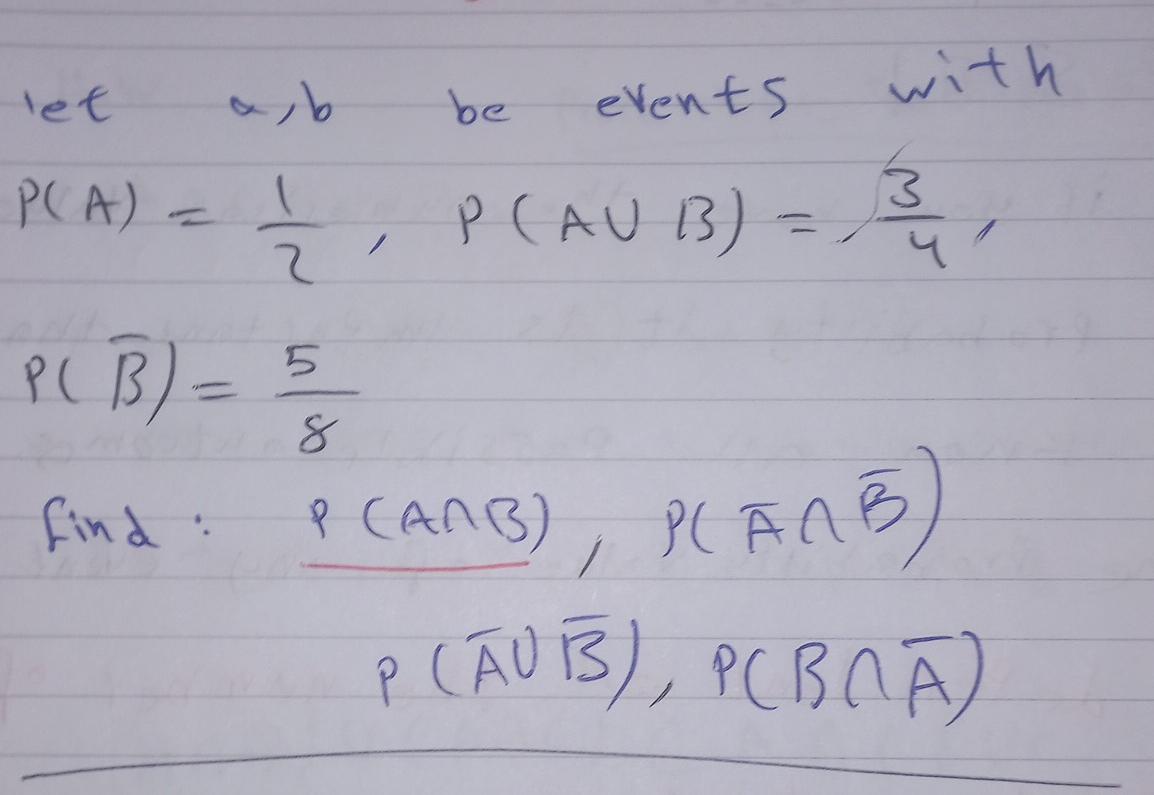 let a,b be events with
P(A) = 1/2, P(A∪B) = 3/4,
P(B̅) = 5/8
find : P(A∩B), P(A̅∩B̅)
P(A̅∪B̅), P(B∩A̅)